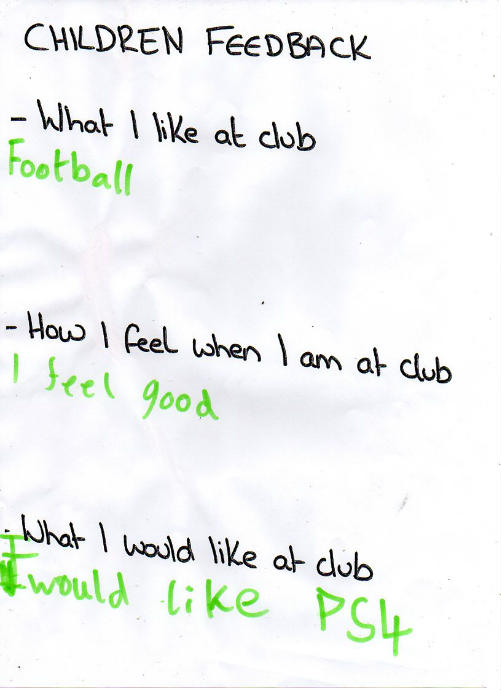 CHILDREN FEEDBACK
- What I like at club
Football
- How I feel when I am at club
I feel good
- What I would like at club
I would like PS4